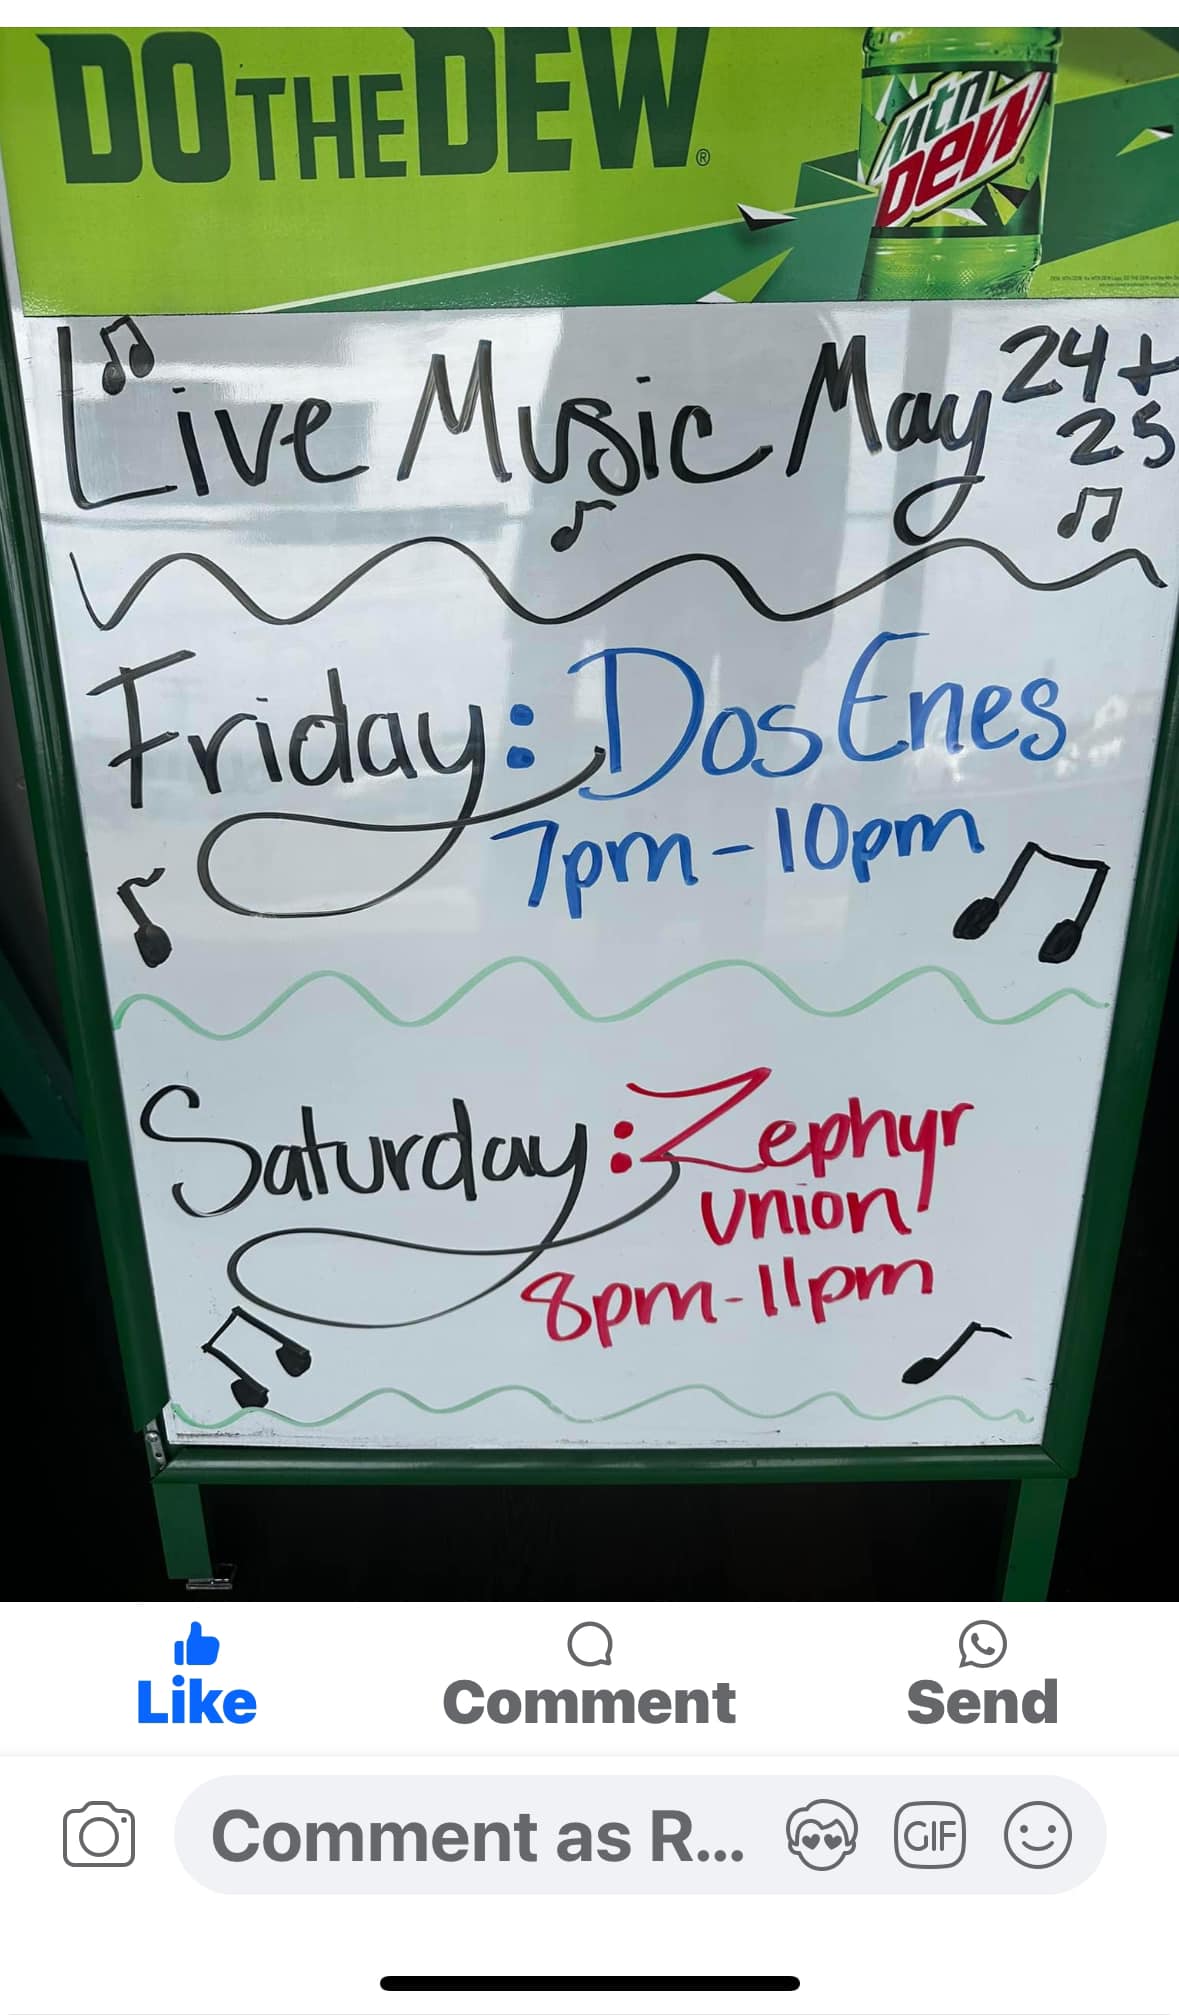 DO THE DEW®
Mtn
DEW
Live Music May 24+
25
Friday: Dos Enes
7pm-10pm
Saturday: Zephyr
Union
8pm-11pm
Like
Comment
Send
Comment as R...
GIF